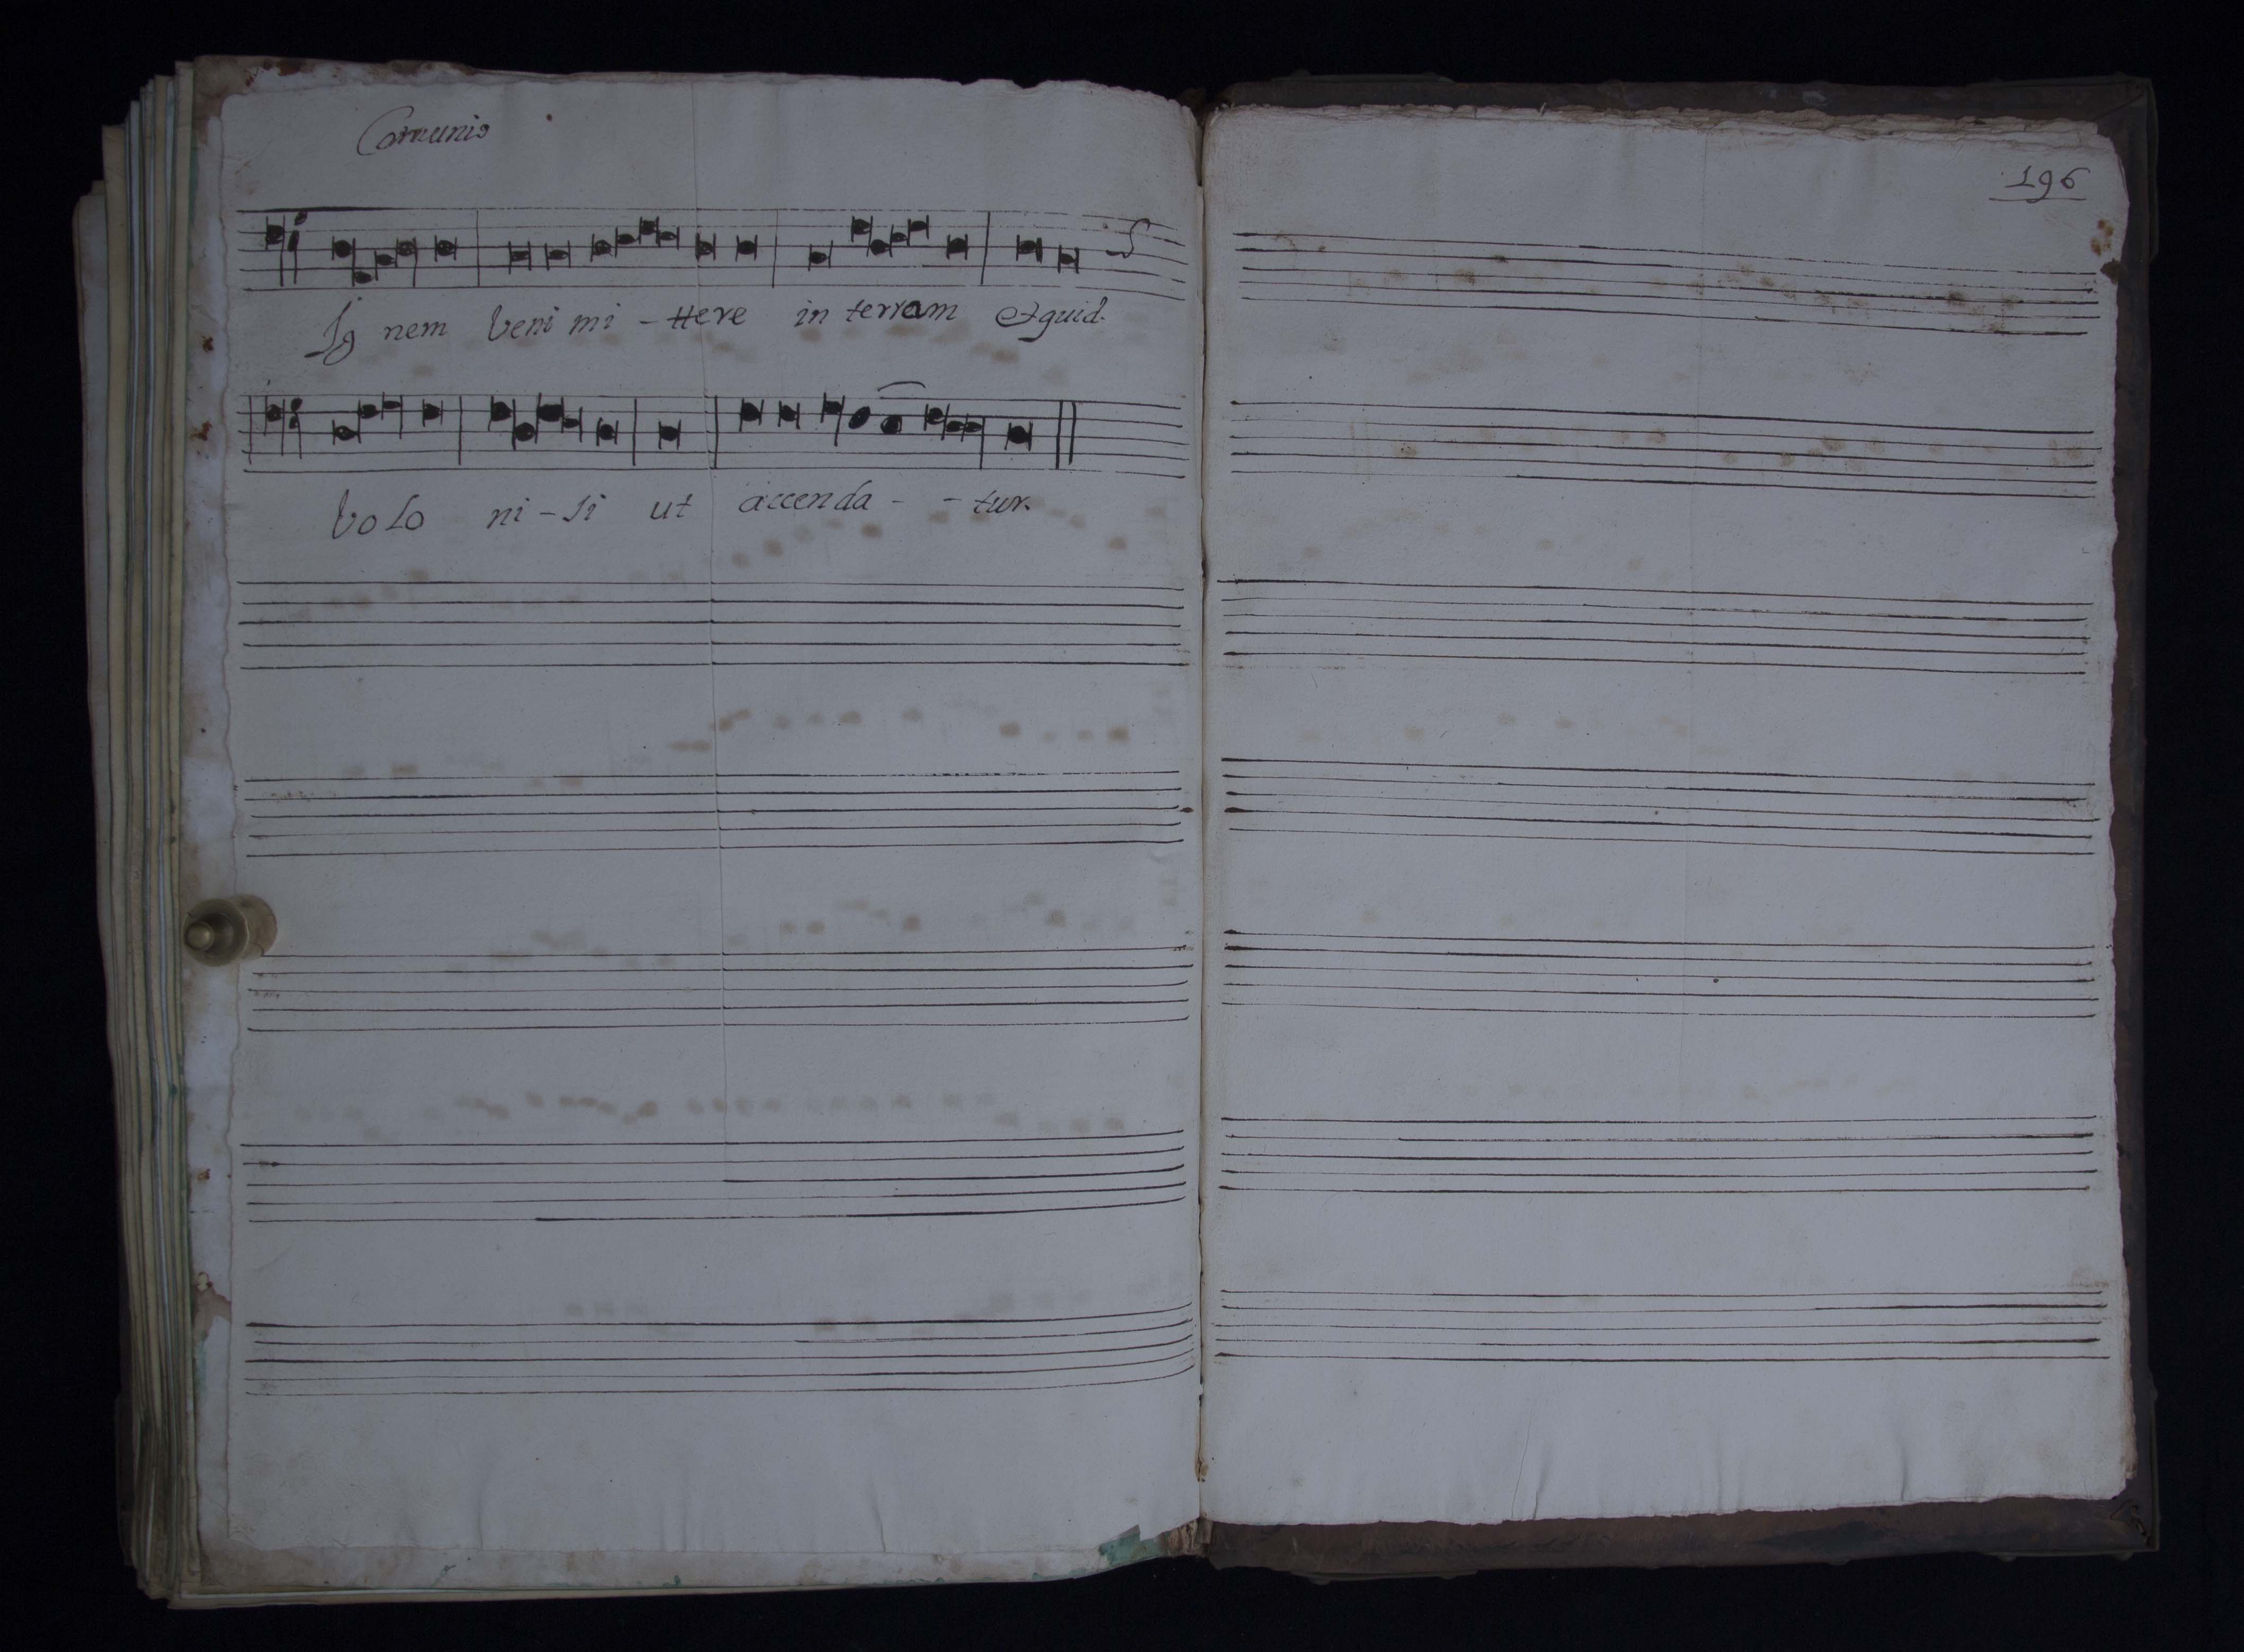 Comunio
196
Ig nem veni mi - ttere in terram et quid
volo ni - si ut accenda - - tur.